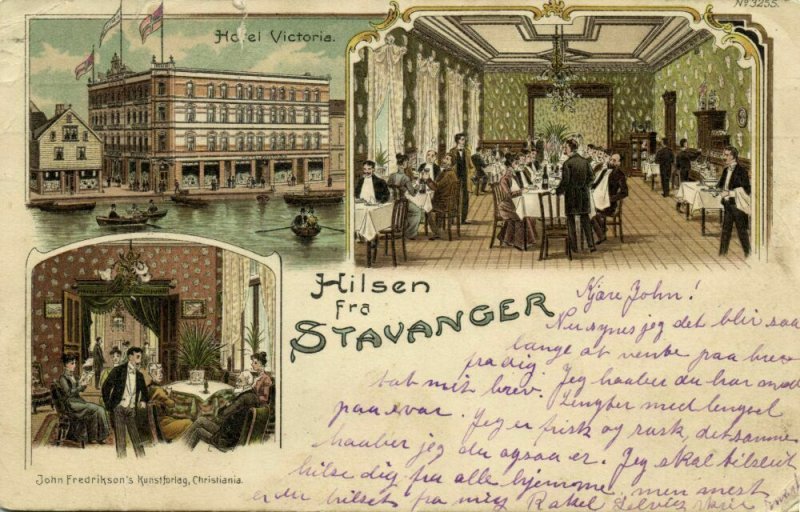 Nº 3255.
Hotel Victoria.
Hilsen
fra
STAVANGER
Kjære John!
Nu synes jeg det blir saa
lange at vente paa brev
fra dig.
mit brev. Jeg haaber du har
paa svar. Længter med lengsel
Jeg er frisk og rask, det samme
haaber jeg du ogsaa er. Jeg skal tilslut
hilse dig fra alle hjemme, men mest
er du hilset fra mig Rakel
John Fredrikson's Kunstforlag, Christiania.